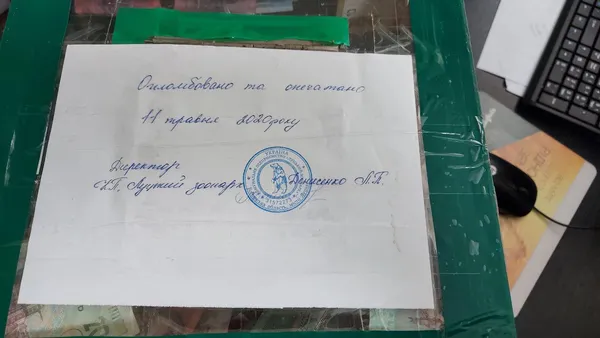 Опломбовано та опечатано
11 травня 2020 року
Директор
К.П. Луцький зоопарк Денисенко Л.П.
УКРАЇНА